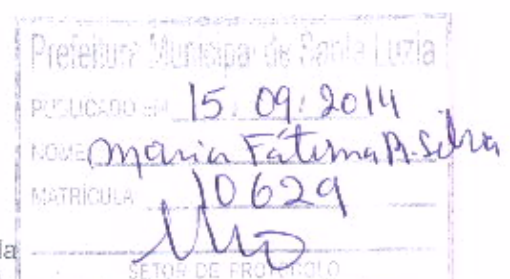 Prefeitura Municipal de Santa Luzia
PUBLICADO EM 15 / 09 / 2014
NOME Maria Fátima A. Silva
MATRÍCULA 10629
la
SETOR DE PROTOCOLO